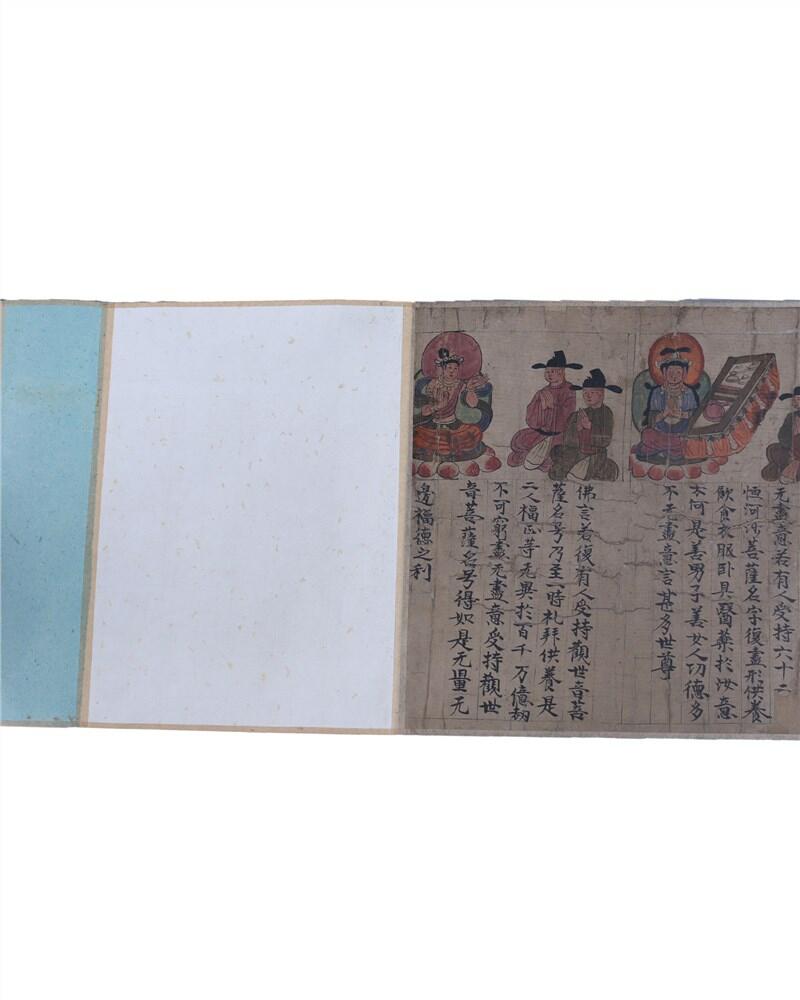 无盡意若有人受持六十二
恒河沙菩薩名字復盡形供養
飲食衣服卧具醫藥於汝意
云何是善男子善女人功德多
不无盡意言甚多世尊
佛言若復有人受持觀世音菩
薩名号乃至一時礼拜供養是
二人福正等无異於百千万億劫
不可窮盡无盡意受持觀世
音菩薩名号得如是无量无
邊福德之利